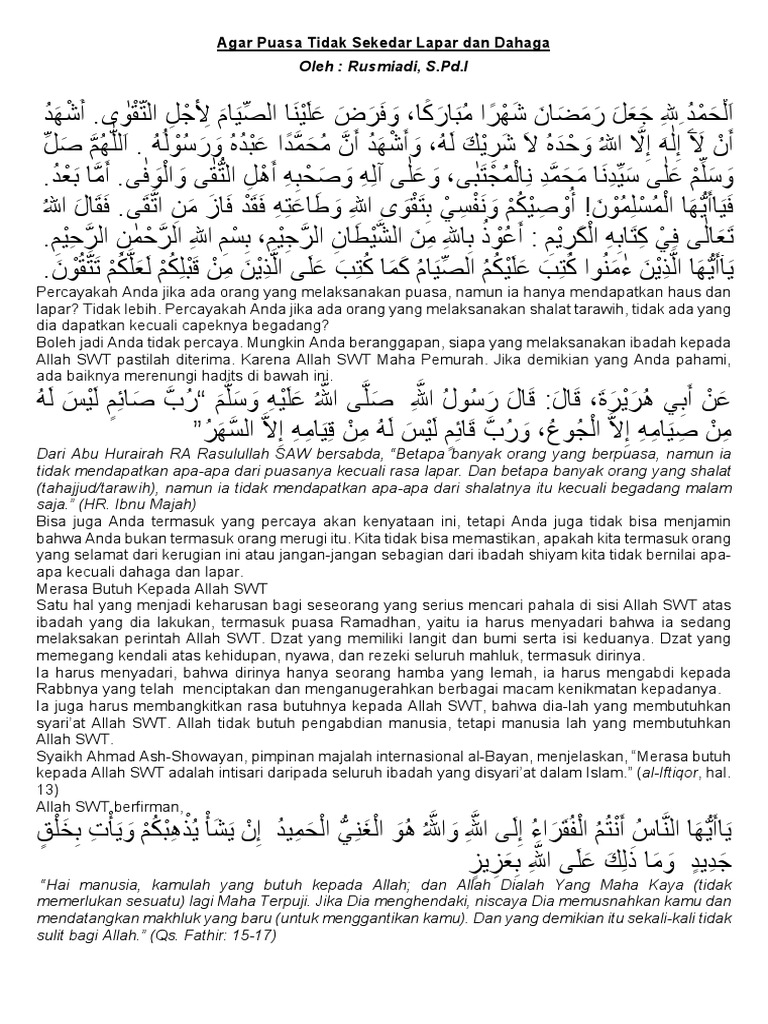 Agar Puasa Tidak Sekedar Lapar dan Dahaga
Oleh : Rusmiadi, S.Pd.I
اَلْحَمْدُ لِلهِ جَعَلَ رَمَضَانَ شَهْرًا مُبَارَكًا، وَفَرَضَ عَلَيْنَا الصِّيَامَ لِأَجْلِ التَّقْوٰى. أَشْهَدُ
أَنْ لَآ إِلٰهَ إِلَّا اللهُ وَحْدَهُ لاَ شَرِيْكَ لَهُ، وَأَشْهَدُ أَنَّ مُحَمَّدًا عَبْدُهُ وَرَسُوْلُهُ . اَللّٰهُمَّ صَلِّ
وَسَلِّمْ عَلٰى سَيِّدِنَا مَحَمَّدِ نِالْمُجْتَبٰى، وَعَلٰى آلِهِ وَصَحْبِهِ أَهْلِ التُّقٰى وَالْوَفٰى. أَمَّا بَعْدُ.
فَيَاأَيُّهَا الْمُسْلِمُوْنَ! أُوْصِيْكُمْ وَنَفْسِيْ بِتَقْوَى اللهِ وَطَاعَتِهِ فَقَدْ فَازَ مَنِ اتَّقَى. فَقَالَ اللهُ
تَعَالٰى فِيْ كِتَابِهِ الْكَرِيْمِ : أَعُوْذُ بِاللهِ مِنَ الشَّيْطَانِ الرَّجِيْمِ، بِسْمِ اللهِ الرَّحْمٰنِ الرَّحِيْمِ.
يَاأَيُّهَا الَّذِيْنَ ءَٰمَنُوا كُتِبَ عَلَيْكُمُ الصِّيَامُ كَمَا كُتِبَ عَلَى الَّذِيْنَ مِنْ قَبْلِكُمْ لَعَلَّكُمْ تَتَّقُوْنَ.
Percayakah Anda jika ada orang yang melaksanakan puasa, namun ia hanya mendapatkan haus dan
lapar? Tidak lebih. Percayakah Anda jika ada orang yang melaksanakan shalat tarawih, tidak ada yang
dia dapatkan kecuali capeknya begadang?
Boleh jadi Anda tidak percaya. Mungkin Anda beranggapan, siapa yang melaksanakan ibadah kepada
Allah SWT pastilah diterima. Karena Allah SWT Maha Pemurah. Jika demikian yang Anda pahami,
ada baiknya merenungi hadits di bawah ini.
عَنْ أَبِي هُرَيْرَةَ، قَالَ: قَالَ رَسُولُ اللَّهِ صَلَّى اللَّهُ عَلَيْهِ وَسَلَّمَ “رُبَّ صَائِمٍ لَيْسَ لَهُ
مِنْ صِيَامِهِ إِلاَّ الْجُوعُ، وَرُبَّ قَائِمٍ لَيْسَ لَهُ مِنْ قِيَامِهِ إِلاَّ السَّهَرُ”
Dari Abu Hurairah RA Rasulullah SAW bersabda, “Betapa banyak orang yang berpuasa, namun ia
tidak mendapatkan apa-apa dari puasanya kecuali rasa lapar. Dan betapa banyak orang yang shalat
(tahajjud/tarawih), namun ia tidak mendapatkan apa-apa dari shalatnya itu kecuali begadang malam
saja.” (HR. Ibnu Majah)
Bisa juga Anda termasuk yang percaya akan kenyataan ini, tetapi Anda juga tidak bisa menjamin
bahwa Anda bukan termasuk orang merugi itu. Kita tidak bisa memastikan, apakah kita termasuk orang
yang selamat dari kerugian ini atau jangan-jangan sebagian dari ibadah shiyam kita tidak bernilai apa-
apa kecuali dahaga dan lapar.
Merasa Butuh Kepada Allah SWT
Satu hal yang menjadi keharusan bagi seseorang yang serius mencari pahala di sisi Allah SWT atas
ibadah yang dia lakukan, termasuk puasa Ramadhan, yaitu ia harus menyadari bahwa ia sedang
melaksanakan perintah Allah SWT. Dzat yang memiliki langit dan bumi serta isi keduanya. Dzat yang
memegang kendali atas kehidupan, nyawa, dan rezeki seluruh mahluk, termasuk dirinya.
Ia harus menyadari, bahwa dirinya hanya seorang hamba yang lemah, ia harus mengabdi kepada
Rabbnya yang telah menciptakan dan menganugerahkan berbagai macam kenikmatan kepadanya.
Ia juga harus membangkitkan rasa butuhnya kepada Allah SWT, bahwa dia-lah yang membutuhkan
syari’at Allah SWT. Allah tidak butuh pengabdian manusia, tetapi manusia lah yang membutuhkan
Allah SWT.
Syaikh Ahmad Ash-Showayan, pimpinan majalah internasional al-Bayan, menjelaskan, “Merasa butuh
kepada Allah SWT adalah intisari daripada seluruh ibadah yang disyari’at dalam Islam.” (al-Iftiqor, hal.
13)
Allah SWT berfirman,
يَاأَيُّهَا النَّاسُ أَنْتُمُ الْفُقَرَاءُ إِلَى اللَّهِ وَاللَّهُ هُوَ الْغَنِيُّ الْحَمِيدُ إِنْ يَشَأْ يُذْهِبْكُمْ وَيَأْتِ بِخَلْقٍ
جَدِيدٍ وَمَا ذَلِكَ عَلَى اللَّهِ بِعَزِيزٍ
“Hai manusia, kamulah yang butuh kepada Allah; dan Allah Dialah Yang Maha Kaya (tidak
memerlukan sesuatu) lagi Maha Terpuji. Jika Dia menghendaki, niscaya Dia memusnahkan kamu dan
mendatangkan makhluk yang baru (untuk menggantikan kamu). Dan yang demikian itu sekali-kali tidak
sulit bagi Allah.” (Qs. Fathir: 15-17)